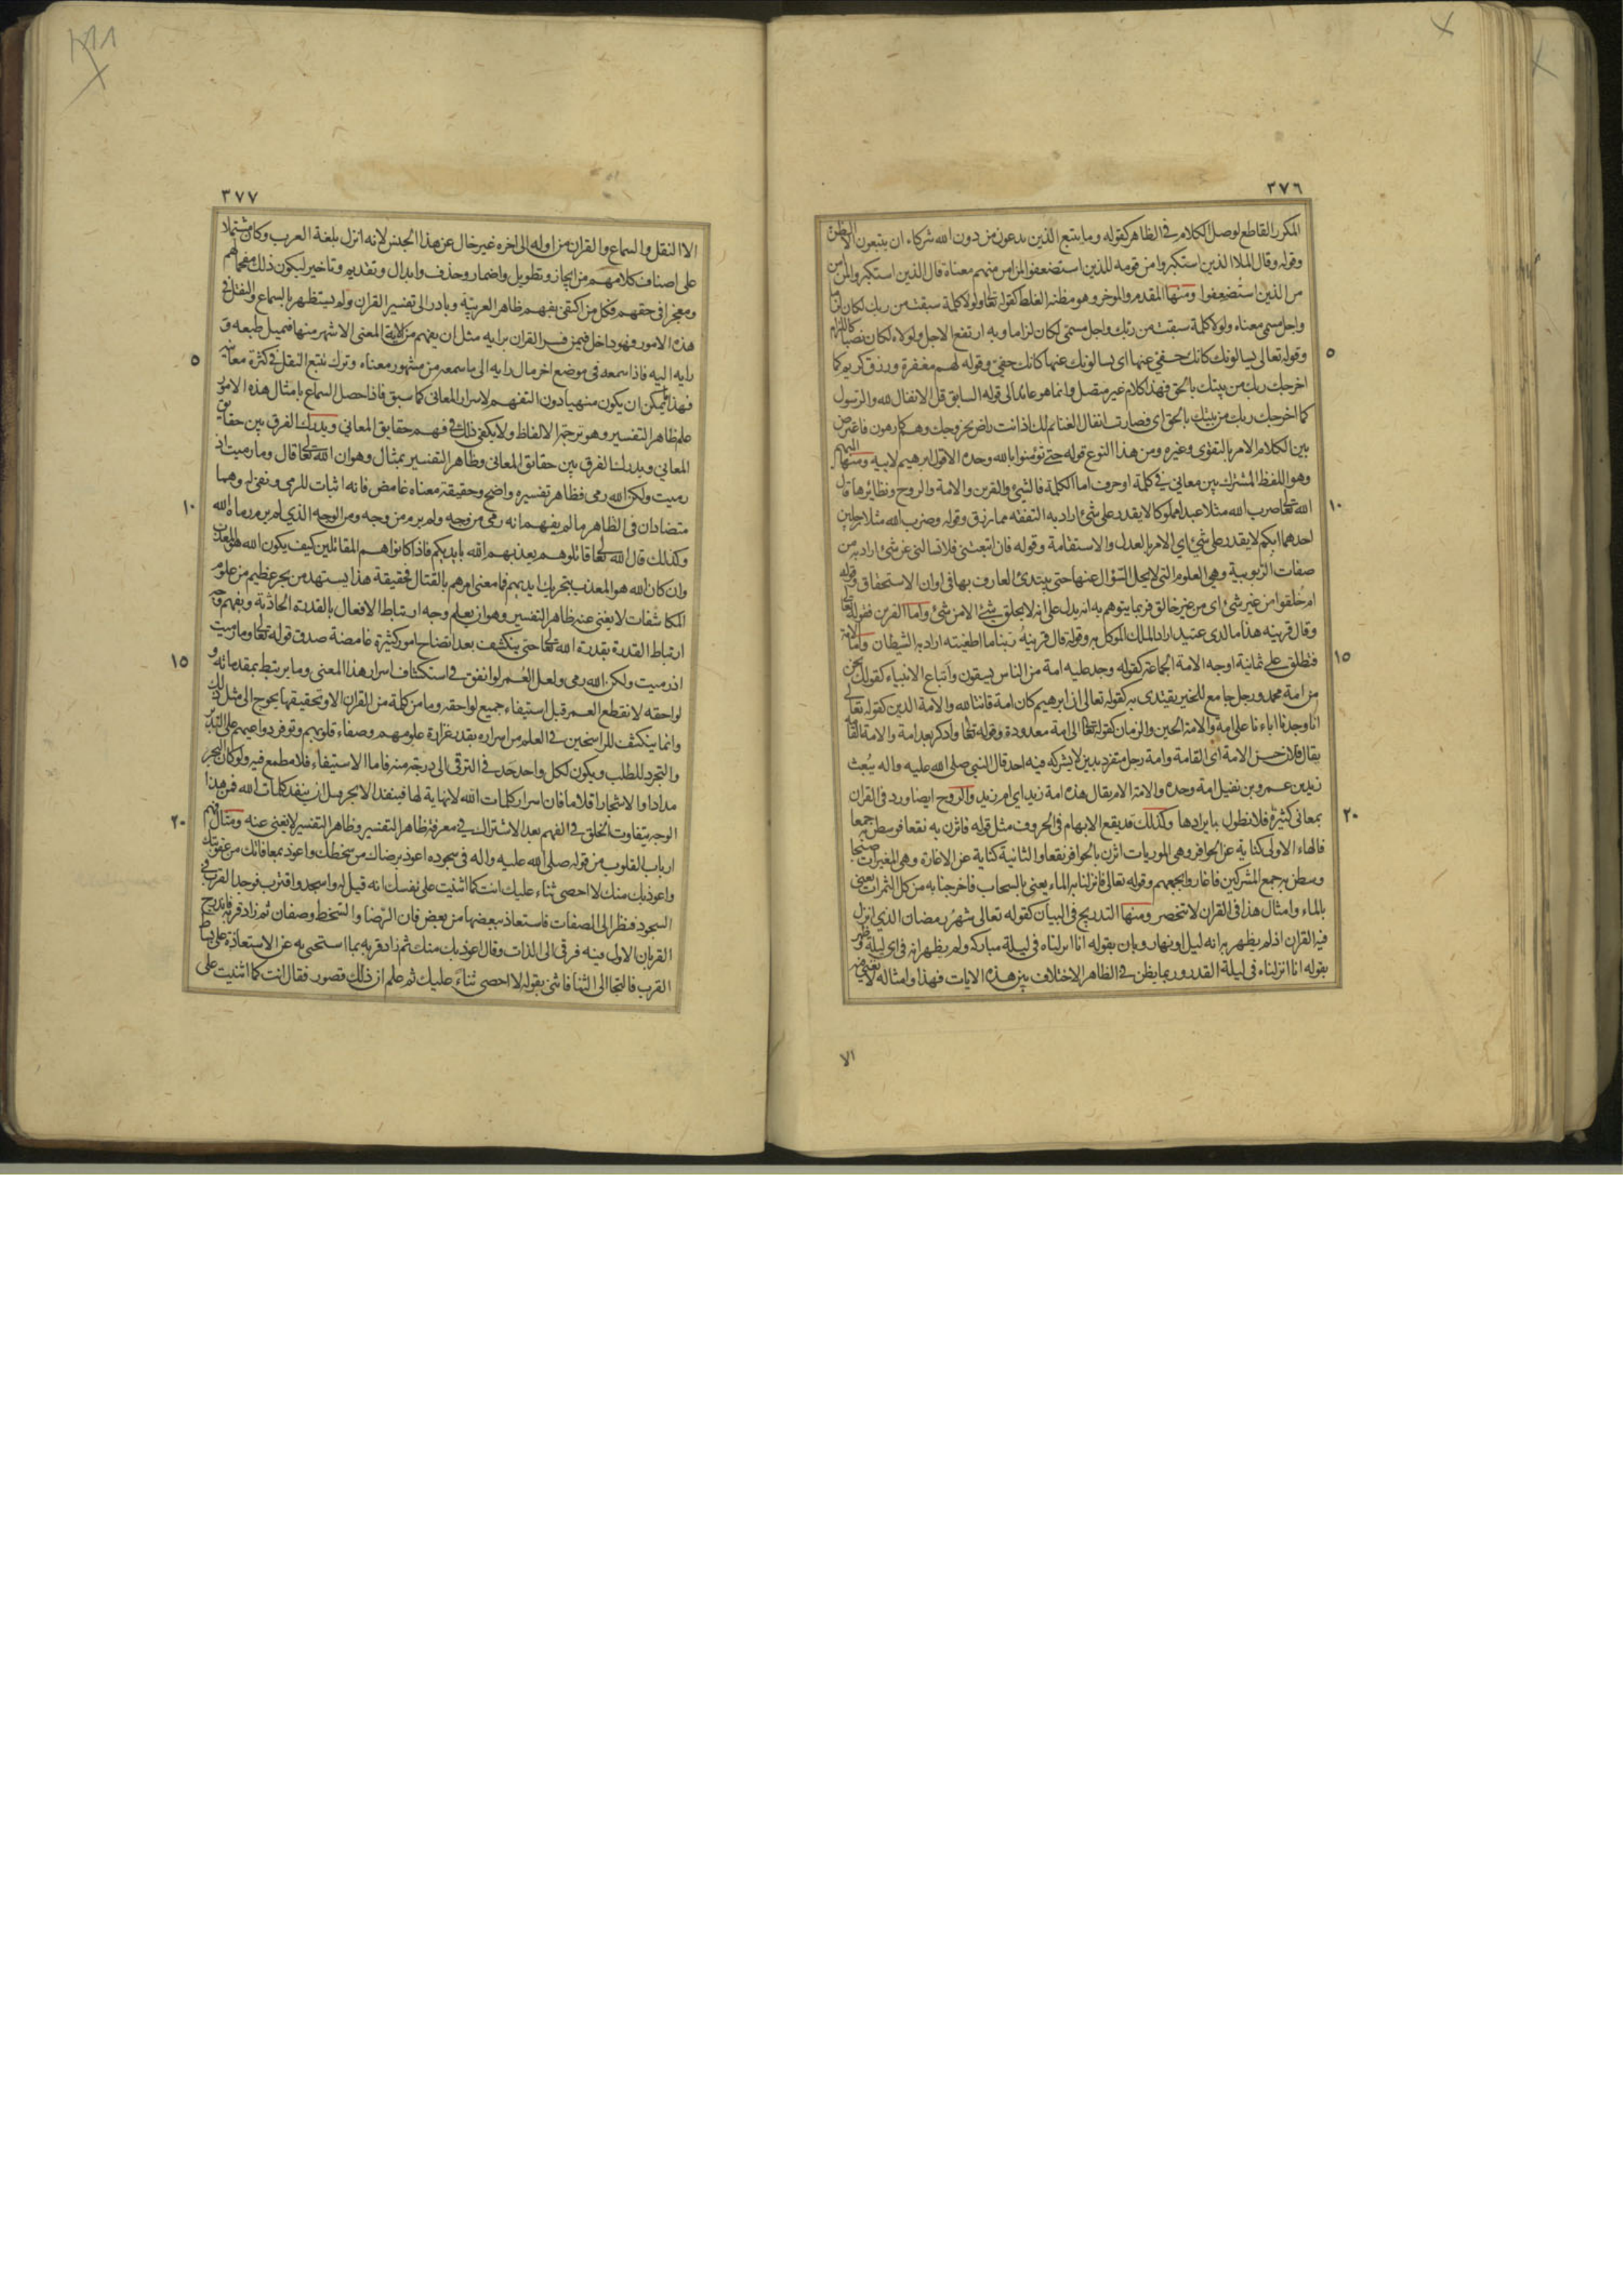 ٣٧٦
المكرر القاطع لوصل الكلام فى الظاهر كقوله وما يتبع الذين يدعون من دون الله شركاء ان يتبعون الا الظن
وقوله وقال الملا الذين استكبروا من قومه للذين استضعفوا لمن امن منهم معناه قال الذين استكبروا لمن امن
من الذين استضعفوا ومنها المقدم والموخر وهو مظنه الغلط كقوله تعالى ولولا كلمة سبقت من ربك لكان لزاما
واجل مسمى معناه ولولا كلمة سبقت من ربك واجل مسمى لكان لزاما وبه ارتفع الاجل ولولاه لكان نصبا كاللزام
٥
وقوله تعالى يسالونك كانك حفى عنها اى يسالونك عنها كانك حفى وقوله لهم مغفرة ورزق كريم كما
اخرجك ربك من بيتك بالحق فهذا كلام غير متصل وانما هو عائد الى قوله السابق قل الانفال لله والرسول
كما اخرجك ربك من بيتك بالحق اى فصارت انفال الغنائم لك اذ انت راض بخروجك وهم كارهون فاعترض
بين الكلام الامر بالتقوى وغيره ومن هذا النوع قوله حتى تؤمنوا بالله وحده الا قول ابرهيم لابيه ومنها المبهم
وهو اللفظ المشترك بين معانى فى كلمة او حرف اما الكلمة فالشئ والقرين والامة والروح ونظايرها قال
١٠
الله تعالى ضرب الله مثلا عبدا مملوكا لا يقدر على شئ اراد به النفقه مما رزق وقوله وضرب الله مثلا رجلين
احدهما ابكم لا يقدر على شئ اى الامر بالعدل والاستقامة وقوله فان اتبعتنى فلا تسالنى عن شئ اراد به من
صفات الربوبية وهى العلوم التى لا يحل السؤال عنها حتى يبتدئ العارف بها فى اوان الاستحقاق وقوله
ام خلقوا من غير شئ اى من غير خالق فربما يتوهم به انه يدل على انه لا يخلق شئ الا من شئ واما القرين فقوله تعالى
وقال قرينه هذا ما لدى عتيد اراد الملك الموكل به وقوله قال قرينه ربنا ما اطغيته اراد به الشيطان واما الامة
١٥
فتطلق على ثمانية اوجه الامة الجماعة كقوله وجد عليه امة من الناس يسقون واتباع الانبياء كقولك نحن
من امة محمد ورجل جامع للخير يقتدى به كقوله تعالى ان ابرهيم كان امة قانتا لله والامة الدين كقوله تعالى
انا وجدنا اباءنا على امة والامة الحين والزمان كقوله تعالى الى امة معدودة وقوله تعالى وادكر بعد امة والامة القامة
يقال فلان حسن الامة اى القامة وامة رجل متفرد بدين لا يشركه فيه احد قال النبى صلى الله عليه واله يبعث
زيد بن عمرو بن نفيل امة وحده والامة الام يقال هذه امة زيد اى ام زيد والروح ايضا ورد فى القران
٢٠
بمعانى كثيرة فلا نطول بايرادها وكذلك قد يقع الابهام فى الحروف مثل قوله فاثرن به نقعا فوسطن به جمعا
فالهاء الاولى كناية عن الحوافر وهى الموريات اثرن بالحوافر نقعا والثانية كناية عن الاغارة وهى المغيرات صبحا
وسطن به جمع المشركين فاغاروا بجمعهم وقوله تعالى فانزلنا به الماء يعنى بالسحاب فاخرجنا به من كل الثمرات يعنى
بالماء وامثال هذا فى القران لا تنحصر ومنها التدريج فى البيان كقوله تعالى شهر رمضان الذى انزل
فيه القران اذ لم يظهر به انه ليل او نهار وبان بقوله انا انزلناه فى ليلة مباركة ولم يظهر انه فى اى ليلة فظهر
بقوله انا انزلناه فى ليلة القدر وربما يظن فى الظاهر الاختلاف بين هذه الايات فهذا وامثاله لا يغنى فيه
الا
٣٧٧
الا النقل والسماع والقران من اوله الى اخره غير خال عن هذا الجنس لانه انزل بلغة العرب وكان مشتملا
على اصناف كلامهم من ايجاز وتطويل واضمار وحذف وابدال وتقديم وتاخير ليكون ذلك مفحما لهم
ومعجزا فى حقهم فكل من اكتفى بفهم ظاهر العربية وبادر الى تفسير القران ولم يستظهر بالسماع والنقل فى
هذه الامور فهو داخل فيمن فسر القران برايه مثل ان يفهم من الامة المعنى الاشهر منها فيميل طبعه و
٥
رايه اليه فاذا سمعه فى موضع اخر مال رايه الى ما سمعه من مشهور معناه وترك تتبع النقل فى كثرة معانيه
فهذا يمكن ان يكون منهيا دون التفهم لاسرار المعانى كما سبق فاذا حصل السماع بامثال هذه الامور
علم ظاهر التفسير وهو ترجمة الالفاظ ولا يكفى ذلك فى فهم حقايق المعانى ويدرك الفرق بين حقايق
المعانى ويدرك الفرق بين حقائق المعانى وظاهر التفسير بمثال وهو ان الله تعالى قال وما رميت اذ
رميت ولكن الله رمى فظاهر تفسيره واضح وحقيقة معناه غامض فانه اثبات للرمى ونفى له وهما
١٠
متضادان فى الظاهر ما لم يفهم انه رمى من وجه ولم يرم من وجه ومن الوجه الذى لم يرم رماه الله
وكذلك قال الله تعالى قاتلوهم يعذبهم الله بايديكم فاذا كانوا هم المقاتلين كيف يكون الله هو المعذب
وان كان الله هو المعذب بتحريك ايديهم فما معنى امرهم بالقتال فحقيقة هذا يستمد من بحر عظيم من علوم
المكاشفات لا يغنى عنه ظاهر التفسير وهو ان يعلم وجه ارتباط الافعال بالقدرة الحادثة ويفهم وجه
ارتباط القدرة بقدرة الله تعالى حتى ينكشف بعد اتضاح امور كثيرة غامضة صدق قوله تعالى وما رميت
١٥
اذ رميت ولكن الله رمى ولعل العمر لو انفق فى استكشاف اسرار هذا المعنى وما يرتبط بمقدماته و
لواحقه لانقطع العمر قبل استيفاء جميع لواحقه وما من كلمة من القران الا وتحقيقها يحوج الى مثل ذلك
وانما ينكشف للراسخين فى العلم من اسراره بقدر غزارة علومهم وصفاء قلوبهم وتوفر دواعيهم على التدبر
والتجرد للطلب ويكون لكل واحد حد فى الترقى الى درجة منه فاما الاستيفاء فلا مطمع فيه ولو كان البحر
مدادا والاشجار اقلاما فان اسرار كلمات الله لا نهاية لها فينفد الابحر قبل ان ينفد كلمات الله فمن هذا
٢٠
الوجه يتفاوت الخلق فى الفهم بعد الاشتراك فى معرفة ظاهر التفسير وظاهر التفسير لا يغنى عنه ومثال فهم
ارباب القلوب من قوله صلى الله عليه واله فى سجوده اعوذ برضاك من سخطك واعوذ بمعافاتك من عقوبتك
واعوذ بك منك لا احصى ثناء عليك انت كما اثنيت على نفسك انه قيل له واسجد واقترب فوجد القرب فى
السجود فنظر الى الصفات فاستعاذ ببعضها من بعض فان الرضا والسخط وصفان ثم زاد قربه فاندرج
القرب الاول فيه فرقى الى الذات وقال اعوذ بك منك ثم زاد قربه بما استحيى به عن الاستعاذة على بساط
القرب فالتجا الى الثنا فاثنى بقوله لا احصى ثناء عليك ثم علم ان ذلك قصور فقال انت كما اثنيت على